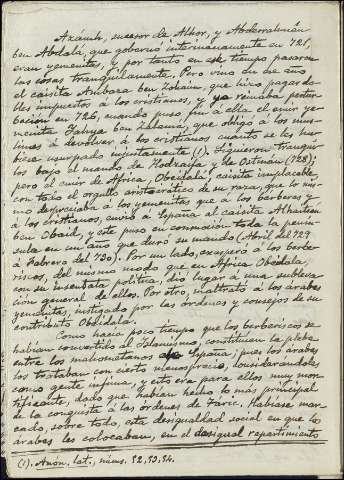 Axamh, sucesor de Alhor, y Abderrahmán
ben Abdalá, que gobernó interinamente en 721,
eran yemenitas, y por tanto en este tiempo pasaron
las cosas tranquilamente. Pero vino
el caisita Anbaza ben Zohaim, que hizo pagar do-
bles impuestos a los cristianos, y ya reinaba pertur-
bación en 726, cuando puso fin a ella el emir ye-
menita Yahya ben Zalama, que obligó a los mus-
limes a devolver a los cristianos cuanto se les hu-
biese usurpado injustamente (1). Siguieron tranqui-
los bajo el mando de Hodzaifa y de Ostmán (728);
pero el emir de Africa, Obeidalá, caisita implacable,
con todo el orgullo aristocrático de su raza, que lo mis-
mo despreciaba a los yemenitas que a los berberes y
a los cristianos, envió a España al caisita Alhaitam
ben Obaid, y este puso en conmoción toda la penín-
sula en un año que duró su mando (Abril del 729
a Febrero del 730). Por un lado, exasperó a los berbe-
riscos, del mismo modo que en Africa Obeidalá,
con su insensata política, dió lugar a una subleva-
ción general de ellos. Por otro, maltrató a los árabes
yemenitas, instigado por las órdenes y consejos de su
contribulo Obeidalá.
Como hacía poco tiempo que los berberiscos se
habían convertido al Islamismo, constituían la plebe
entre los mahometanos de España; pues los árabes
los trataban con cierto menosprecio, considerándoles
como gente ínfima, y esto era para ellos muy mor-
tificante, dado que habían hecho lo más principal
de la conquista a las órdenes de Taric. Habíase mar-
cado, sobre todo, esta desigualdad social en que los
árabes les colocaban, en el desigual repartimiento
(1). Anón. lat., núms. 52, 53, 54.